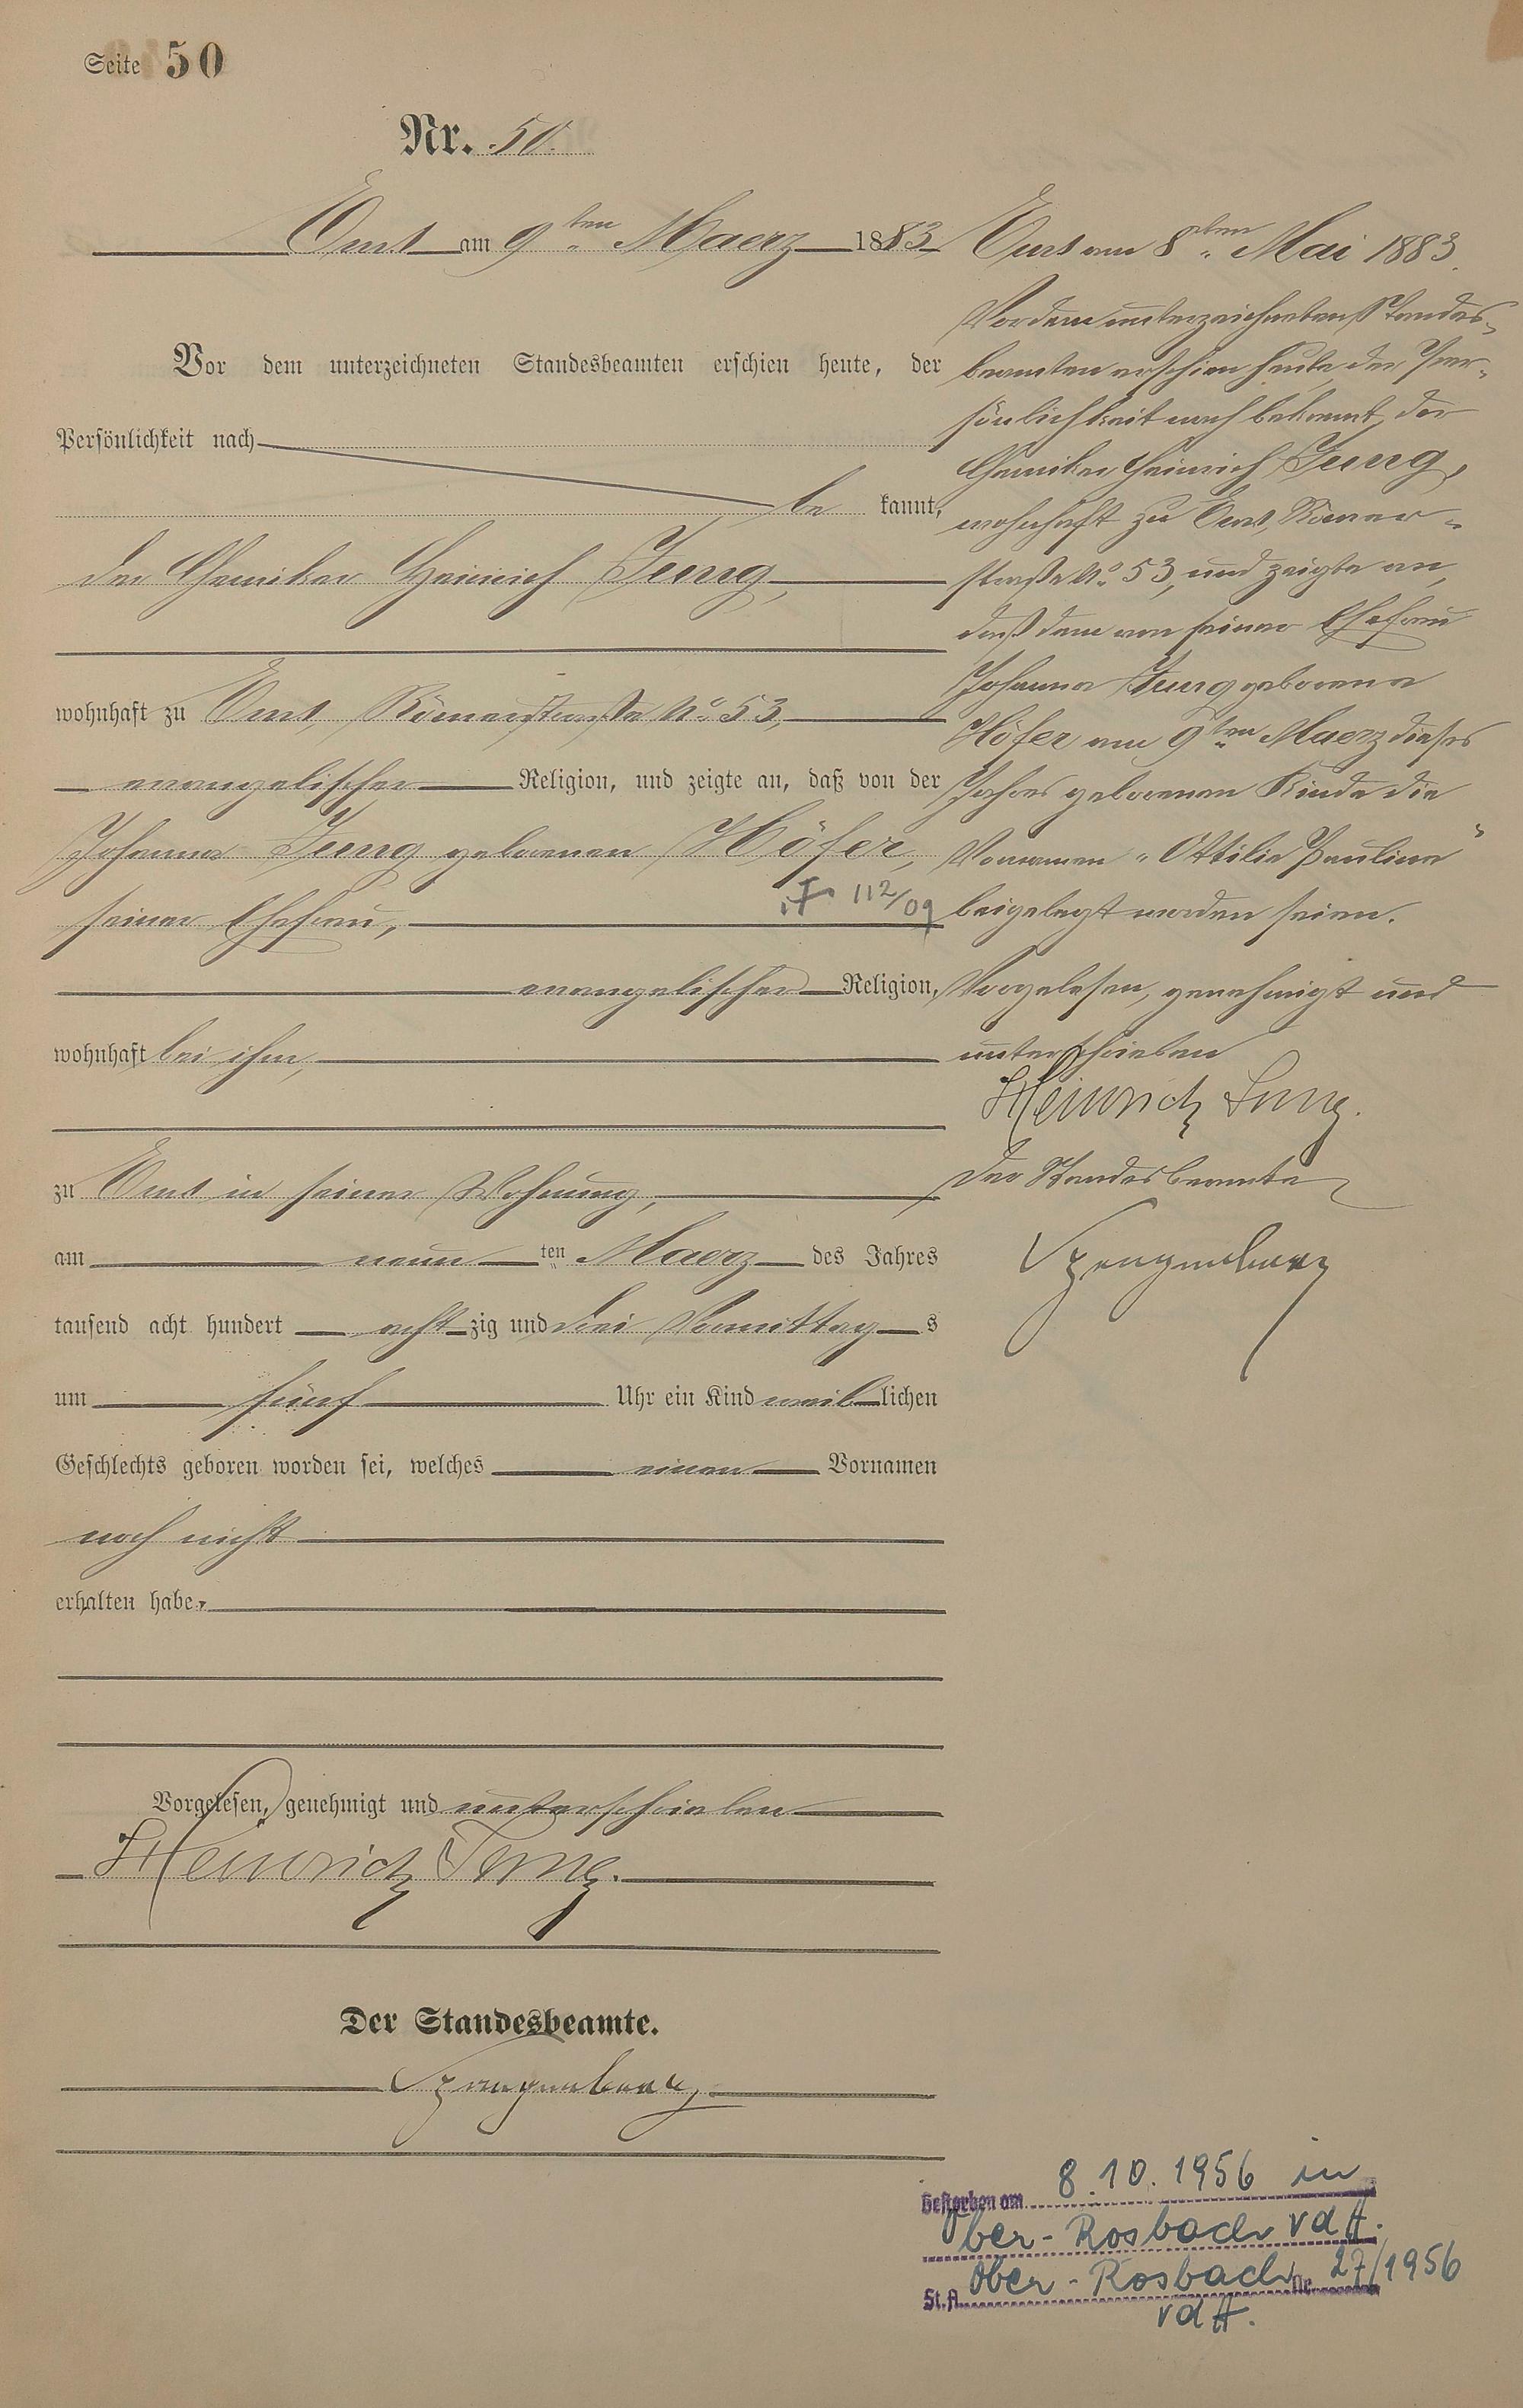 Seite 50
Nr. 50.
Ems am 9ten Maerz 1883
Vor dem unterzeichneten Standesbeamten erschien heute, der
Persönlichkeit nach
be kannt,
der Chemiker Heinrich Jung,
wohnhaft zu Ems, Römerstraße No. 53,
evangelischer Religion, und zeigte an, daß von der
Johanna Jung geborenen Höfer,
seiner Ehefrau,
112/09
evangelischer Religion,
wohnhaft bei ihm,
zu Ems in seiner Wohnung,
am neun ten Maerz des Jahres
tausend acht hundert acht zig und drei Vormittag s
um fünf Uhr ein Kind weib lichen
Geschlechts geboren worden sei, welches einen Vornamen
noch nicht
erhalten habe.
Vorgelesen, genehmigt und unterschrieben
Heinrich Jung.
Der Standesbeamte.
Ems am 8ten Mai 1883.
Vor dem unterzeichneten Standes-
beamten erschien heute, der Per-
sönlichkeit nach bekannt, der
Chemiker Heinrich Jung,
wohnhaft zu Ems, Römer-
straße No. 53, und zeigte an,
daß dem von seiner Ehefrau
Johanna Jung geborene
Höfer am 9ten Maerz dieses
Jahres geborenen Kinde die
Vornamen „Ottilie Pauline“
beigelegt worden seien.
Vorgelesen, genehmigt und
unterschrieben
Heinrich Jung.
Der Standesbeamte
Gestorben am 8.10.1956 in
Ober-Rosbach v d H.
St.A. Ober-Rosbach Nr. 27/1956
v d H.